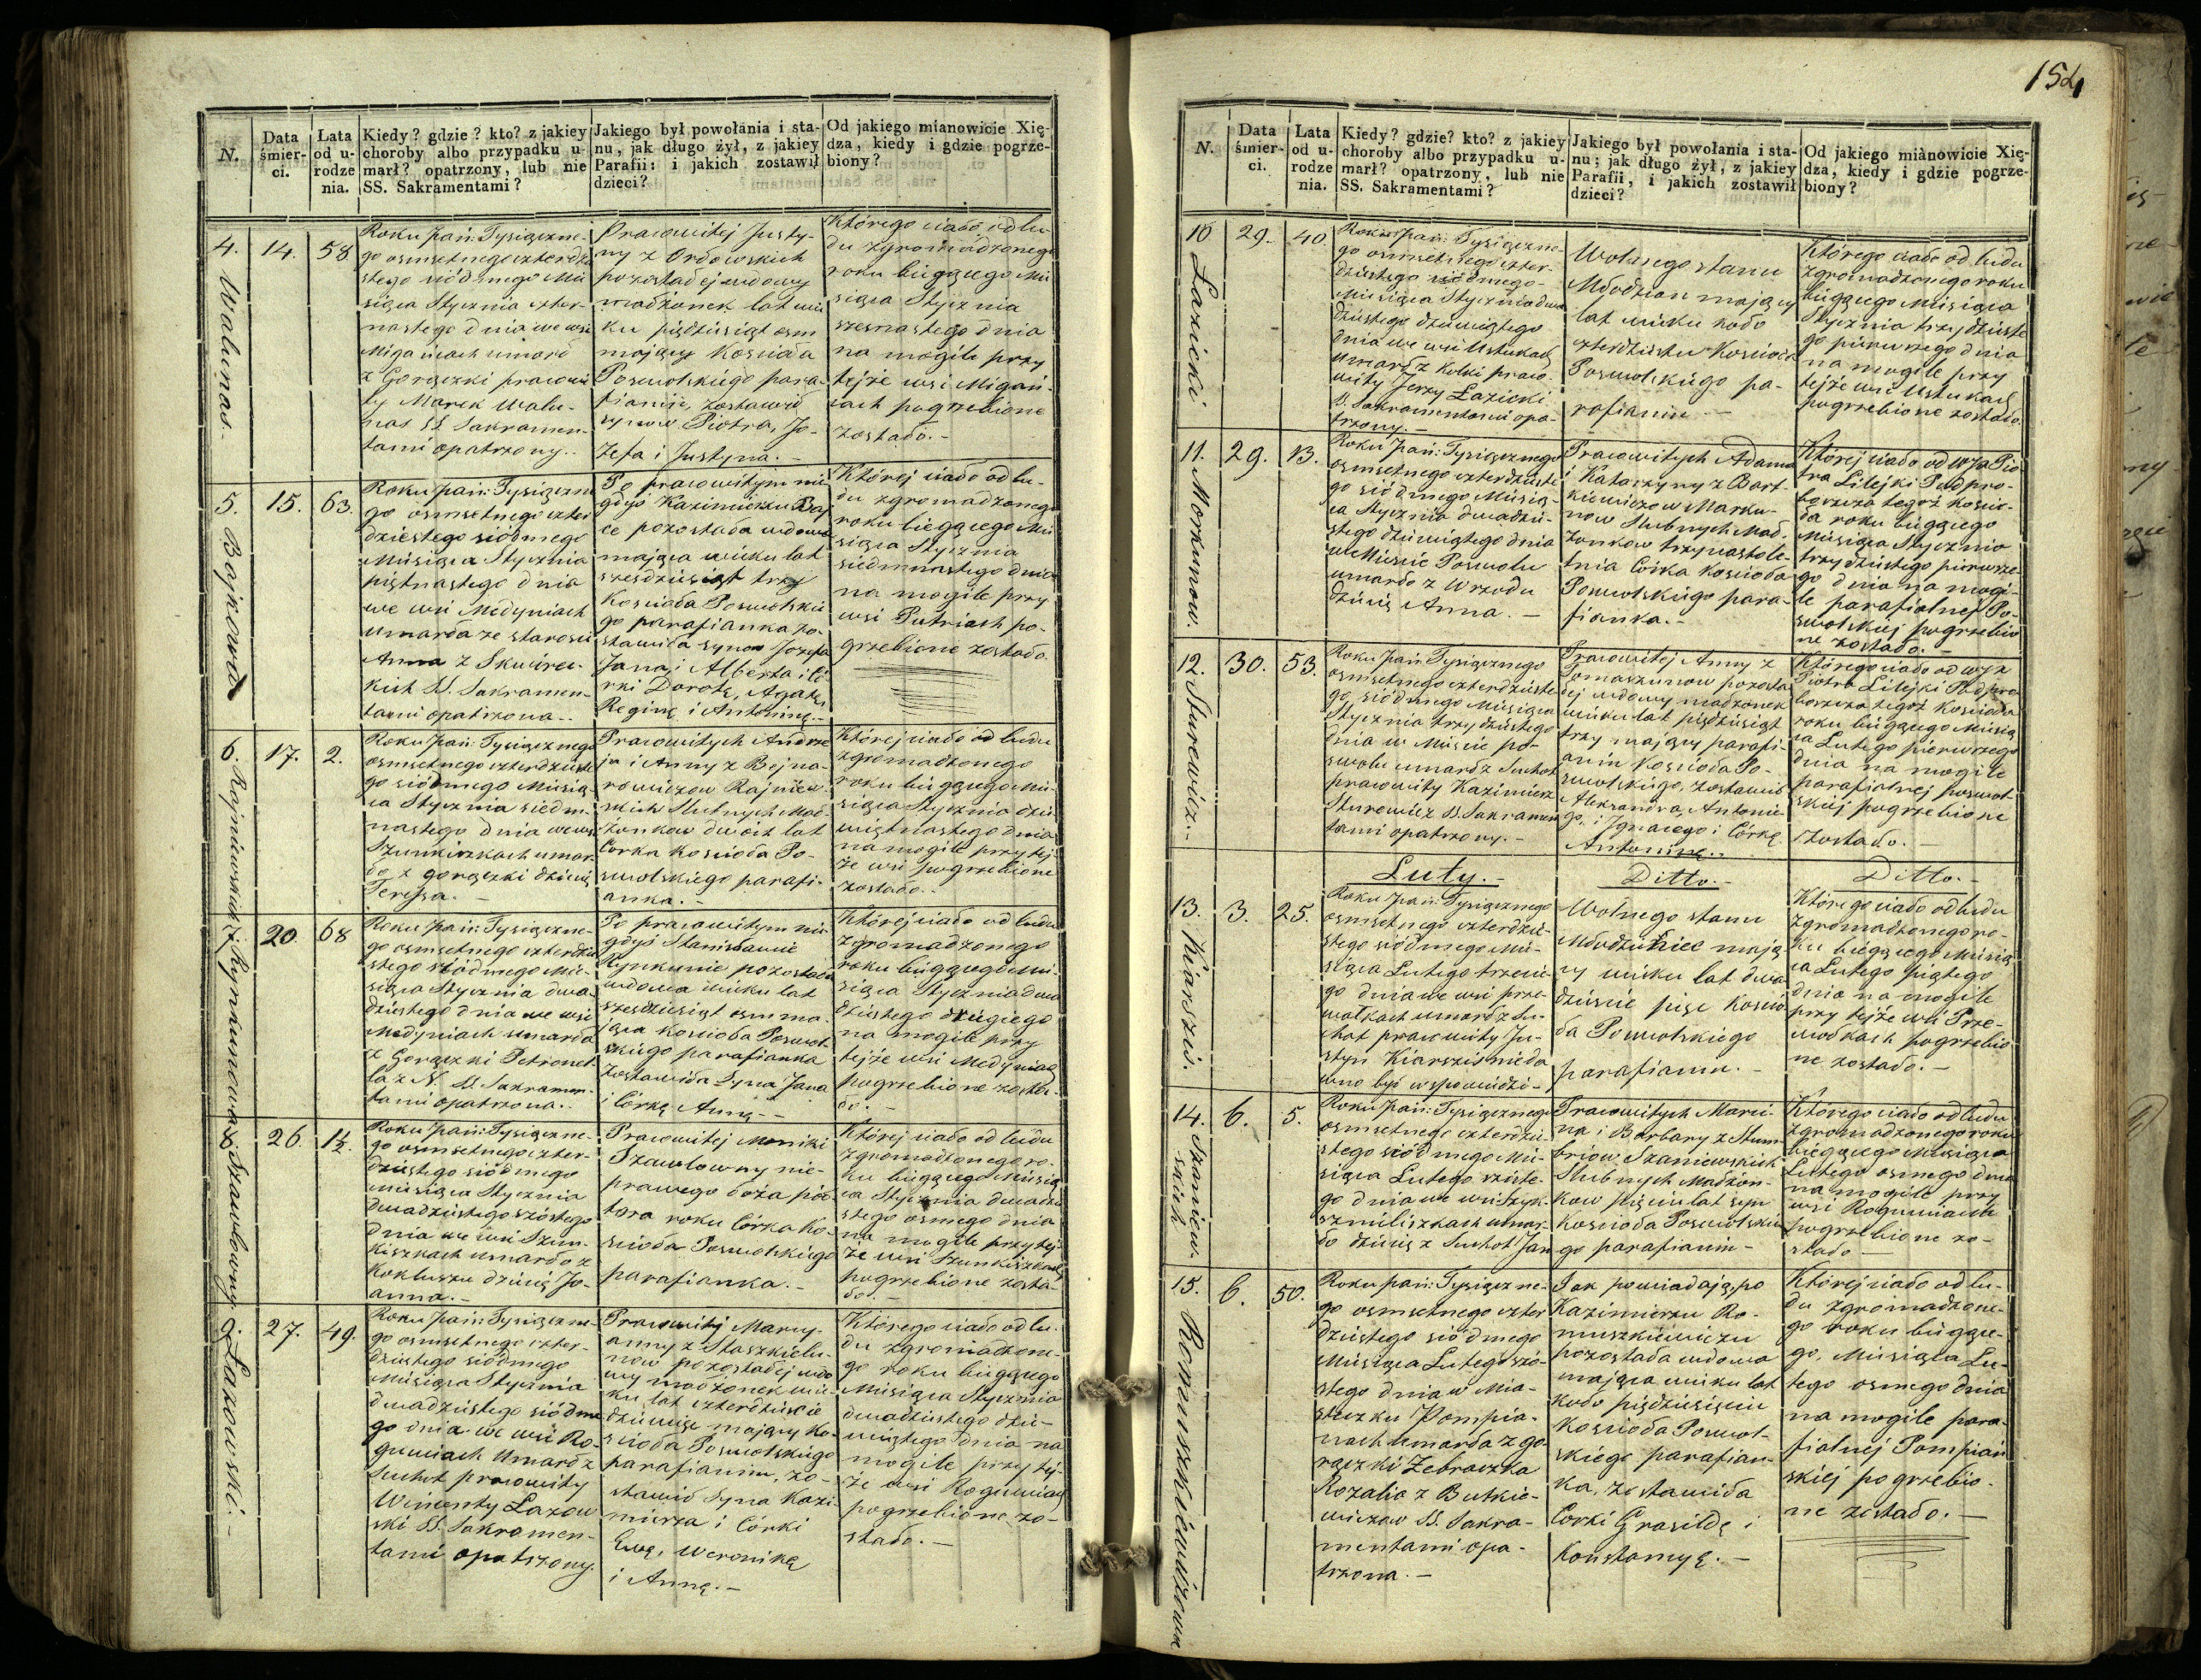 154
N.
Data śmierci.
Lata od urodzenia.
Kiedy? gdzie? kto? z jakiey
choroby albo przypadku u-
marł? opatrzony, lub nie
SS. Sakramentami?
Jakiego był powołania i sta-
nu, jak długo żył, z jakiey
Parafii: i jakich zostawił
dzieci?
Od jakiego mianowicie Xię-
dza, kiedy i gdzie pogrze-
biony?
4. Walunas.
14.
58
Roku Pań: Tysiączne-
go osmsetnego czterdzie
stego siódmego Mie
siąca Stycznia czter-
nastego dnia we wsi
Miganiach umarł
z Gorączki pracowi
ty Marek Walu-
nas SS Sakramen-
tami opatrzony.
Pracowitej Justy-
ny z Ordowskich
pozostałej wdowy
małżonek lat wie
ku pięćdziesiąt osm
mający Kościoła
Poswolskiego para-
fianin, zostawił
synow Piotra, Jo-
zefa i Justyna.
Którego ciało od lu-
du zgromadzonego
roku bieżącego Mie
siąca Stycznia
szesnastego dnia
na mogile przy
tejże wsi Migań-
cach pogrzebione
zostało.
5. Bajkowa
15.
63.
Roku Pań: Tysiączne
go osmsetnego czter
dziestego siódmego
Miesiąca Stycznia
piętnastego dnia
we wsi Medyniach
umarła ze starości
Anna z Skwirec-
kich SS. Sakramen-
tami opatrzona.
Po pracowitym nie
gdyś Kazimierzu Baj
ce pozostała wdowa
mająca wieku lat
szesdziesiąt trzy
Kościoła Poswolskie
go parafianka zo-
stawiła synow Jozefa
Jana i Alberta i Có
rki Dorotę, Agatę
Reginę i Antoninę.
Której ciało od lu-
du zgromadzonego
roku bieżącego Mie
siąca Stycznia
siedmnastego dnia
na mogile przy
wsi Putriach po-
grzebione zostało
6. Rajniewskich
17.
2.
Roku Pań: Tysiącznego
osmsetnego czterdzieste
go siódmego Miesią-
ca Stycznia siedm-
nastego dnia we wsi
Szunkiszkach umar-
ło z gorączki dziecię
Teressa.
Pracowitych Andrze
ja i Anny z Bejna-
rowiczow Rajniew-
skich Slubnych Mał-
żonkow dwóch lat
Corka Kościoła Po-
swolskiego parafi-
anka.
Której ciało od ludu
zgromadzonego
roku bieżącego Mie-
siąca Stycznia dzie
więtnastego dnia
na mogile przy tej-
że wsi pogrzebione
zostało.
7. Rynkunowa
20.
68
Roku Pań: Tysiączne-
go osmsetnego czterdzie
stego siódmego Mie-
siąca Stycznia dwa-
dziestego dnia we wsi
Medyniach umarła
z Gorączki Petronel-
la z N. SS. Sakramen-
tami opatrzona.
Po pracowitym nie-
gdyś Stanisławie
Rynkunie pozostała
wdowa wieku lat
szesdziesiąt osm ma-
jąca Kościoła Poswol-
skiego parafianka
zostawiła Syna Jana
i Córkę Annę.
Której ciało od ludu
zgromadzonego
roku bieżącego Mie-
siąca Stycznia dwu
dziestego drugiego
na mogile przy
tejże wsi Medyniach
pogrzebione zosta-
ło.
8. Szawlowny
26.
1½.
Roku Pań: Tysiączne-
go osmsetnego czter-
dziestego siódmego
Miesiąca Stycznia
dwadziestego szóstego
dnia we wsi Szun-
kiszkach umarło z
Kokluszu dziecię Jo-
anna.
Pracowitej Moniki
Szawlowny nie-
prawego łoża pół-
tora roku Córka Ko-
ścioła Poswolskiego
parafianka.
Której ciało od ludu
zgromadzonego ro-
ku bieżącego Miesią
ca Stycznia dwadzie
stego osmego dnia
na mogile przy tej-
że wsi Szunkiszkach
pogrzebione zosta-
ło.
9. Lazowski.
27.
49.
Roku Pań: Tysiączne-
go osmsetnego czter-
dziestego siódmego
Miesiąca Stycznia
dwadziestego siódme
go dnia we wsi Ro-
guwiach Umarł z
Suchot pracowity
Wincenty Lazow
ski SS. Sakramen-
tami opatrzony.
Pracowitej Mary-
anny z Staszkielu-
now pozostałej wdo
wy małżonek wie-
ku lat czterdzieście
dziewięć mający Ko-
ścioła Poswolskiego
parafianin, zo-
stawił Syna Kazi-
mierza i Córki
Ewę, Weronikę
i Annę.
Którego ciało od lu-
du zgromadzone-
go roku bieżącego
Miesiąca Stycznia
dwadziestego dzie-
wiątego dnia na
mogile przy tej-
że wsi Roguwiach
pogrzebione zo-
stało.
N.
Data śmierci.
Lata od urodzenia.
Kiedy? gdzie? kto? z jakiey
choroby albo przypadku u-
marł? opatrzony, lub nie
SS. Sakramentami?
Jakiego był powołania i sta-
nu; jak długo żył, z jakiey
Parafii, i jakich zostawił
dzieci?
Od jakiego mianowicie Xię-
dza, kiedy i gdzie pogrze-
biony?
10 Lazicki
29.
40.
Roku Pań: Tysiączne-
go osmsetnego czter-
dziestego siódmego
Miesiąca Stycznia dwa
dziestego dziewiątego
dnia we wsi Ustukach
Umarł z Kolki praco-
wity Jerzy Łazicki
S. Sakramentami opa-
trzony.
Wolnego stanu
Młodzian mający
lat wieku koło
czterdziestu Kościoła
Poswolskiego pa-
rafianin.
Którego ciało od ludu
zgromadzonego roku
bieżącego Miesiąca
Stycznia trzydzieste
go pierwszego dnia
na mogile przy
tejże wsi Ustukach
pogrzebione zostało.
11. Morkunow.
29.
13.
Roku Pań: Tysiącznego
osmsetnego czterdzieste
go siódmego Miesią-
ca Stycznia dwadzie-
stego dziewiątego dnia
w Mieście Poswolu
umarło z Wrzodu
dziecię Anna.
Pracowitych Adama
i Katarzyny z Bart-
kiewiczow Morku-
now Slubnych Mał-
żonkow trzynastole-
tnia Córka Kościoła
Poswolskiego para-
fianka.
Której ciało od WJX Pio
tra Lilejki Podpro-
borszcza tegoż Kościo-
ła roku bieżącego
Miesiąca Stycznia
trzydziestego pierwsze-
go dnia na mogi-
le parafialnej Po-
swolskiej pogrzebio
ne zostało.
12. Sturewicz.
30.
53.
Roku Pań: Tysiącznego
osmsetnego czterdzieste
go siódmego Miesiąca
Stycznia trzydziestego
dnia w Mieście Po-
swolu umarł z Suchot
pracowity Kazimierz
Sturewicz SS. Sakramen
tami opatrzony.
Pracowitej Anny z
Tomaszunow pozosta
łej wdowy małżonek
wieku lat pięćdziesiąt
trzy mający parafi-
anin Kościoła Po-
swolskiego, zostawił
Alexandra, Antonie-
go, i Ignacego i Córkę
Antoninę.
Którego ciało od WJX
Piotra Lilejki Podpro
borszcza tegoż Kościoła
roku bieżącego Miesią
ca Lutego pierwszego
dnia na mogile
parafialnej poswol-
skiej pogrzebione
zostało.
Luty.
Ditto.
Ditto.
13. Kiarszis.
3.
25.
Roku Pań: Tysiącznego
osmsetnego czterdzie-
stego siódmego Mie-
siąca Lutego trzecie
go dnia we wsi Prze-
wałkach umarł z Su-
chot pracowity Ju-
styn Kiarszis nieda
wno był w spowiedzi
Wolnego stanu
Młodzieniec mają
cy wieku lat dwa
dzieście pięć Kościo
ła Poswolskiego
parafianin.
Którego ciało od ludu
zgromadzonego ro-
ku bieżącego Miesią
ca Lutego piątego
dnia na mogile
przy tejże wsi Prze-
wałkach pogrzebio
ne zostało.
14. Szaniew-
skich
6.
5.
Roku Pań: Tysiącznego
osmsetnego czterdzie-
stego siódmego Mie-
siąca Lutego szóste-
go dnia we wsi Szyk-
szniliszkach umar-
ło dziecię z Suchot Jan
Pracowitych Marci-
na i Barbary z Stum-
briow Szaniewskich
Slubnych Małżon-
kow pięciu lat syn
Kościoła Poswolskie
go parafianin
Którego ciało od ludu
zgromadzonego roku
bieżącego Miesiąca
Lutego osmego dnia
na mogile przy
wsi Roguwiach
pogrzebione zo-
stało
15. Romuszkiewiczowa
6.
50.
Roku Pań: Tysiączne-
go osmsetnego czter
dziestego siódmego
Miesiąca Lutego szó-
stego dnia w Mia-
steczku Pompia-
nach Umarła z go-
rączki Żebraczka
Rozalia z Butkie-
wiczow SS. Sakra-
mentami opa-
trzona.
Jak powiadają po
Kazimierzu Ro-
muszkiewiczu
pozostała wdowa
mająca wieku lat
koło pięćdziesięciu
Kościoła Poswol-
skiego parafian-
ka, zostawiła
Corki Grasildę i
Konstancyę.
Której ciało od lu-
du zgromadzone-
go roku bieżące-
go, Miesiąca Lu-
tego osmego dnia
na mogile para-
fialnej Pompiań
skiej pogrzebio-
ne zostało.